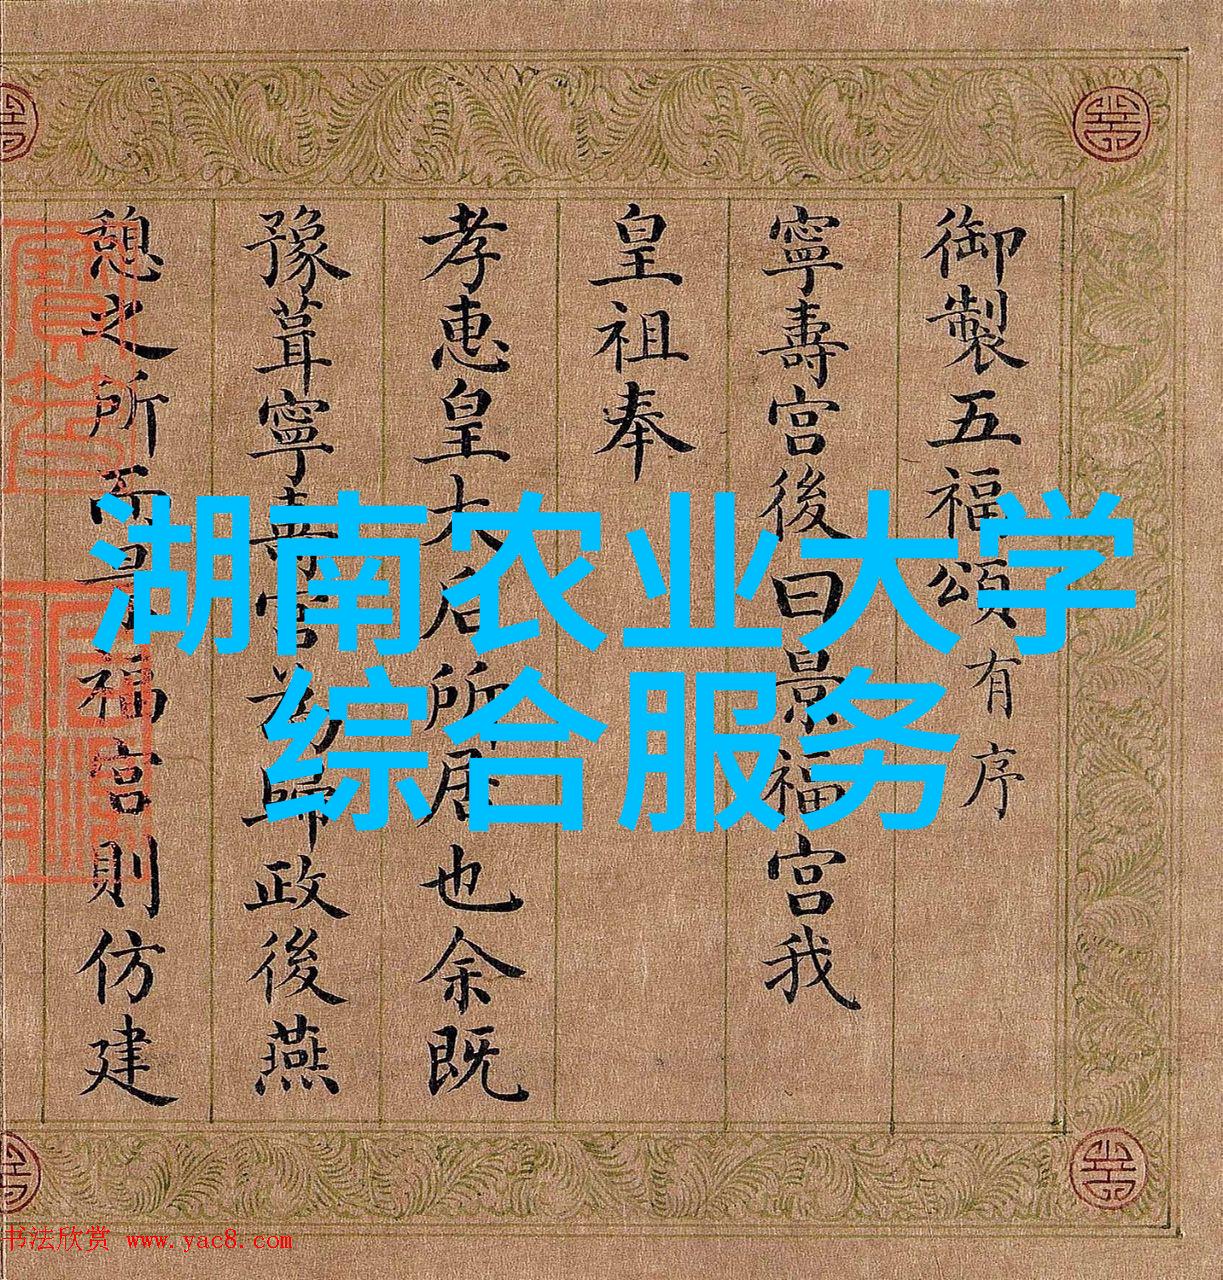 御製五福頌有序
寧壽宮後曰景福宮我
皇祖奉
孝惠皇太后所居也余既
豫葺寧壽宮為歸政後燕
憩之所而景福宮則仿建
湖南农业大学
综合服务
书法欣赏 www.yac8.com